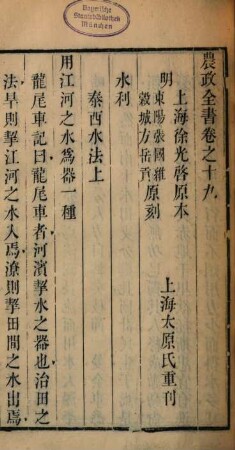 Bayerische
Staatsbibliothek
München
農政全書卷之十九
上海徐光啓原本
明
東陽張國維
穀城方岳貢
原刻
上海太原氏重刊
水利
泰西水法上
用江河之水爲器一種
龍尾車記曰龍尾車者河濱挈水之器也治田之
法旱則挈江河之水入焉潦則挈田間之水出焉